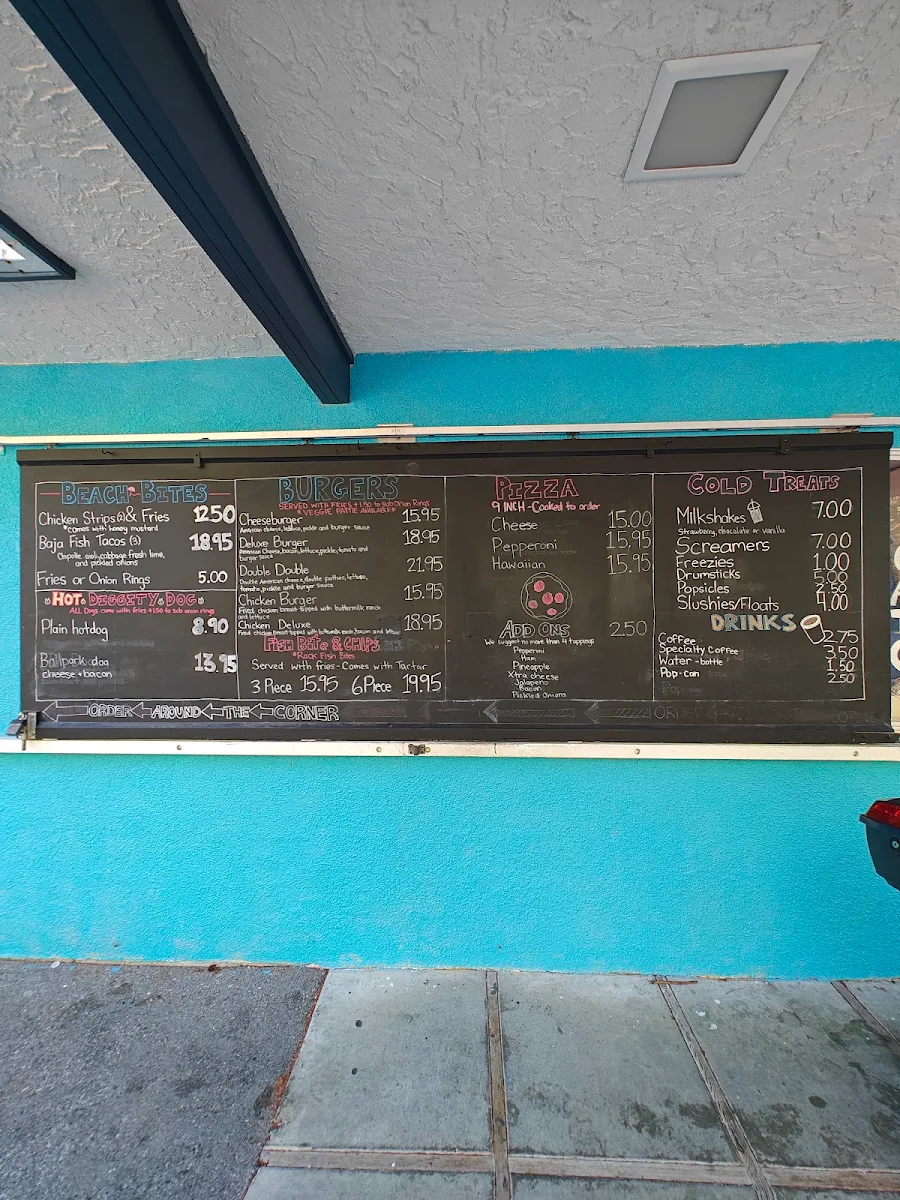 BEACH BITES
Chicken Strips(3)& Fries 12.50
*Comes with honey mustard
Baja Fish Tacos (3) 18.95
Chipotle aioli, cabbage fresh lime,
and pickled onions
Fries or Onion Rings 5.00
HOT DIGGITY DOG
ALL Dogs come with fries +1.50 to sub onion rings
Plain hotdog 8.90
Ballpark dog 13.95
cheese + bacon
BURGERS
SERVED WITH FRIES +1.50 to Sub Onion Rings
* VEGGIE PATTIE AVAILABLE *
Cheeseburger 15.95
American cheese, lettuce, pickle and burger sauce
Deluxe Burger 18.95
American Cheese, bacon, lettuce, pickle, tomato and
burger sauce
Double Double 21.95
Double American cheese, double patties, lettuce,
tomato, pickle and burger sauce
Chicken Burger 15.95
Fried chicken breast topped with buttermilk ranch
and lettuce
Chicken Deluxe 18.95
Fried chicken breast topped with buttermilk ranch, bacon and lettuce
FISH BITE & CHIPS
*Rock Fish Bites
Served with fries - Comes with Tartar
3 Piece 15.95 6 Piece 19.95
PIZZA
9 INCH - Cooked to order
Cheese 15.00
Pepperoni 15.95
Hawaiian 15.95
ADD ONS 2.50
We suggest no more than 4 toppings
Pepperoni
Ham
Pineapple
Xtra cheese
Jalapeno
Bacon
Pickled Onions
COLD TREATS
Milkshakes 7.00
Strawberry, chocolate or vanilla
Screamers 7.00
Freezies 1.00
Drumsticks 5.00
Popsicles 2.50
Slushies/Floats 4.00
DRINKS
Coffee 2.75
Specialty Coffee 3.50
Water - bottle 1.50
Pop - can 2.50
ORDER AROUND THE CORNER